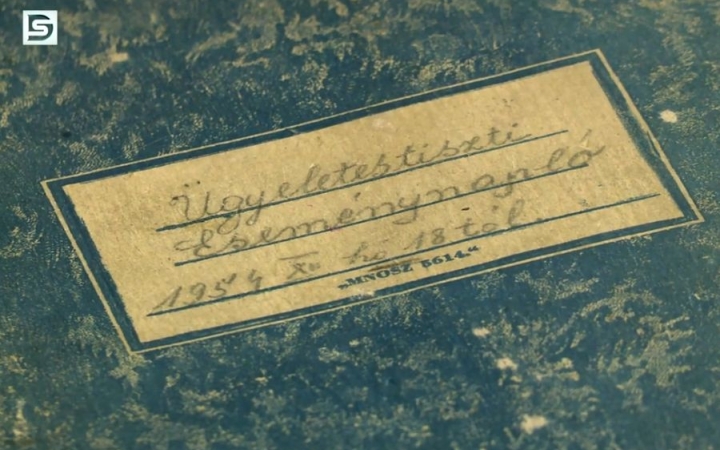 Ügyeletestiszti
Eseménynapló
1954 XII hó 18 tól.
„MNOSZ 5614.“